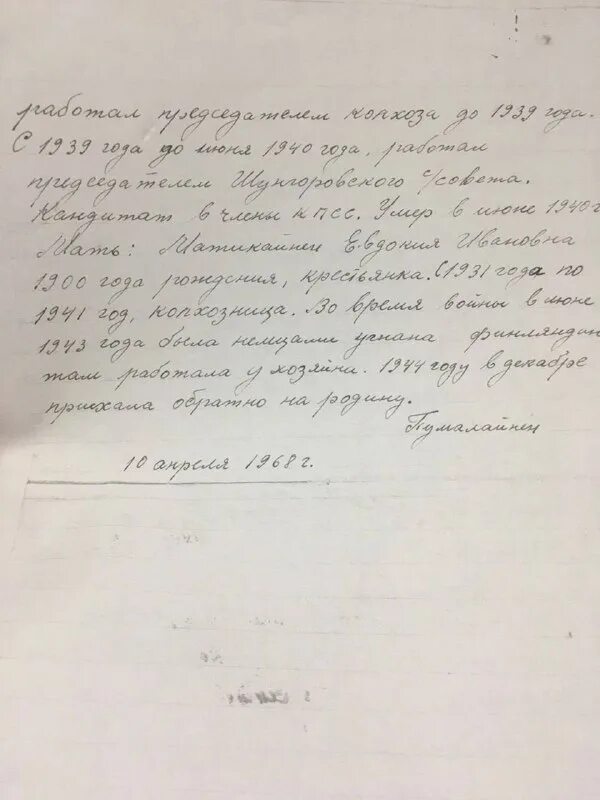 работал председателем колхоза до 1939 года.
С 1939 года до июня 1940 года, работал
председателем Шунгоровского с/совета.
Кандитат в члены КПСС. Умер в июне 1940 г
Мать: Матикайнен Евдокия Ивановна
1900 года рождения, крестьянка. С 1931 года по
1941 год, колхозница. Во время войны в июне
1943 года была немцами угнана финляндии
там работала у хозяйни. 1944 году в декабре
приехала обратно на родину.
Пумалайнен
10 апреля 1968 г.